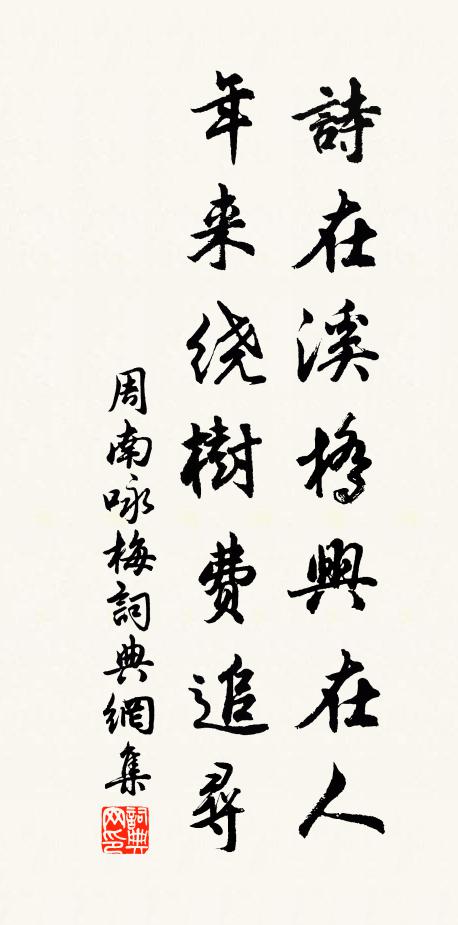 詩在溪橋興在人
年来绕樹費追尋
周南咏梅詞典網集
詞典网印